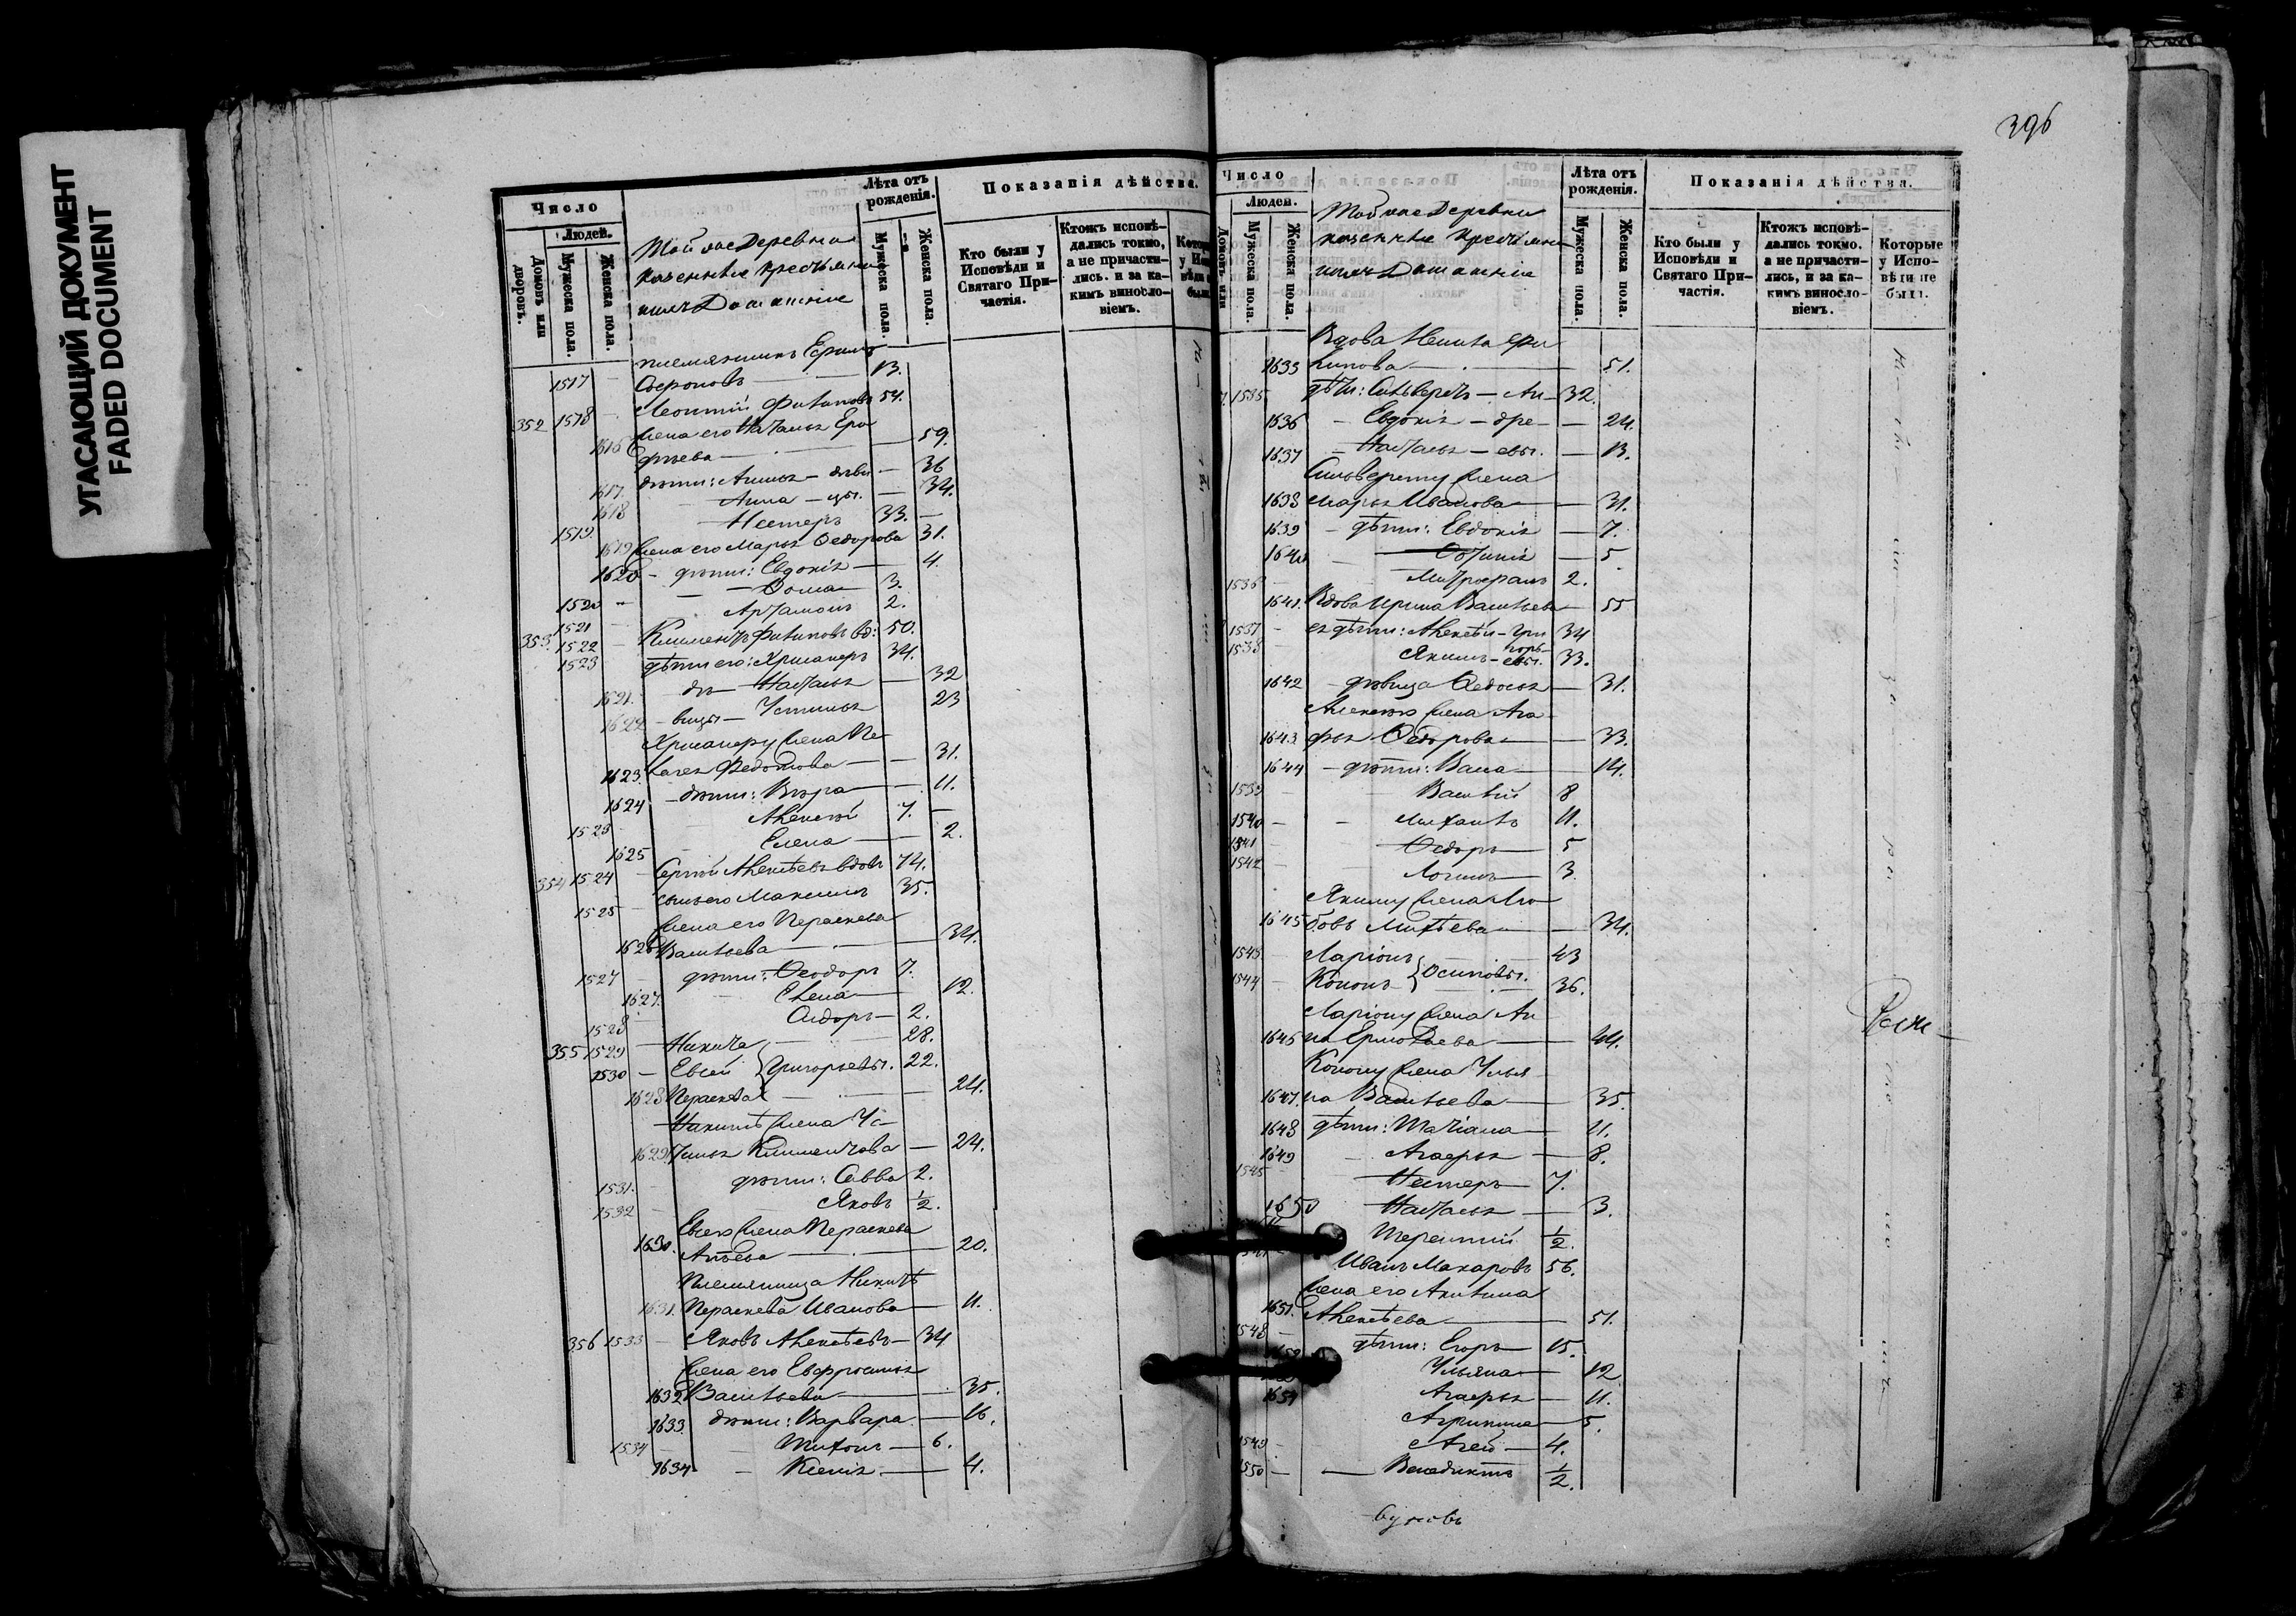 УГАСАЮЩИЙ ДОКУМЕНТ
FADED DOCUMENT
396
Число
Людей.
Домовъ или дворовъ.
Мужеска пола.
Женска пола.
Той же Деревни
казенные крестьяне
и ихъ Домашніе
Лѣта отъ рожденія.
Мужеска пола.
Женска пола.
Показанія дѣйства.
Кто были у Исповѣди и Святаго Причастія.
Ктожъ исповѣдались токмо, а не причастились. и за какимъ винословіемъ.
племянникъ Ефимъ
1517 Софроновъ 13.
352 1518 Леонтій Филиповъ 54.
жена его Наталья
1616 59.
1617. дѣти: Аксинья — дѣви 36
1618 Анна — цы. 34.
1519. Нестеръ 33.
1619 жена его Марья Ѳедорова 31.
1620 дѣти: Евдокія 4.
1520 Ѳома 3.
1521 Артамонъ 2.
353. 1522 Климентъ Филиповъ вд: 50.
1523 дѣти его: Хрисанфъ 34.
1621. дѣ — Наталья 32
1622 вицы — Устинья 23
Хрисанфу жена Пе
1623. лагея Федотова 31.
1624 дѣти: Вѣра 11.
1523 Алексѣй 7.
1625 Елена 2.
354 1524 Сергѣй Алексѣевъ вдовъ 74.
1525 сынъ его Максимъ 35.
жена его Пераскева
1626 Васильева 34.
1527 дѣти: Ѳеодоръ 7.
1627. Елена 12.
1528 Сидоръ 2.
355 1529 Никита 28.
1530 Евсей Григорьевы. 22.
1628 Пераскева 24.
Никитѣ жена Ус
1629 тинья Климентова 24.
1531. дѣти: Савва 2.
1532 Яковъ ½.
Евсею жена Пераскева
1630. 20.
племянница Никитѣ
1631. Пераскева Иванова 11.
356 1533 Яковъ Алексѣевъ 34
жена его Евфросинья
1632 Васильева 35.
1633 дѣти: Варвара 16.
1534 Тихонъ 6.
1634 Ксенія 4.
Число
Людей.
Домовъ или
Мужеска пола.
Женска пола.
Той же Деревни
казенные крестьяне
и ихъ Домашніе
Лѣта отъ рожденія.
Мужеска пола.
Женска пола.
Показанія дѣйства.
Кто были у Исповѣди и Святаго Причастія.
Ктожъ исповѣдались токмо. а не причастились, и за какимъ винословіемъ.
Которые у Исповѣди не были.
Вдова Ненила Фи
1635 липова 51.
1535 дѣти: Сильверстъ — Ан 32.
1636 Евдокія — дре 24.
1637 Наталья — евы. 13.
Сильверсту жена
1638 Марья Иванова 31.
1639 дѣти: Евдокія 7.
1640 5
1536 Митрофанъ 2.
1641. Вдова Ирина Васильева 55
1537 ея дѣти: Алексѣй — Гри 34
1538 Якимъ — горьевы. 33.
1642 дѣвица Ѳедосья 31.
Алексѣю жена Ага
1643 фья Ѳедорова 33.
1644 дѣти: Васса 14.
1539 Василій 8
1540 Михаилъ 11.
1541 Ѳедоръ 5
1542 Логинъ 3.
Якиму жена Лю
1645 бовь Михѣева 34.
1543 Ларіонъ 43
1544 Кононъ Осиповы. 36.
Ларіону жена Ан
1645 на Ермолаева 44.
Конону жена Улья
1647. на Васильева 35.
1648 дѣти: Татіана 11.
1649 Агафья 8.
1545 Нестеръ 7.
1650 Наталья 3.
Терентій ½.
Иванъ Макаровъ 56.
жена его Акилина
1651. Алексѣева 51.
1548 дѣти: Егоръ 15.
Ульяна 12
1654 Агафья 11.
Агрипина 5.
1549 Агей 4.
1550 Венедиктъ ½.